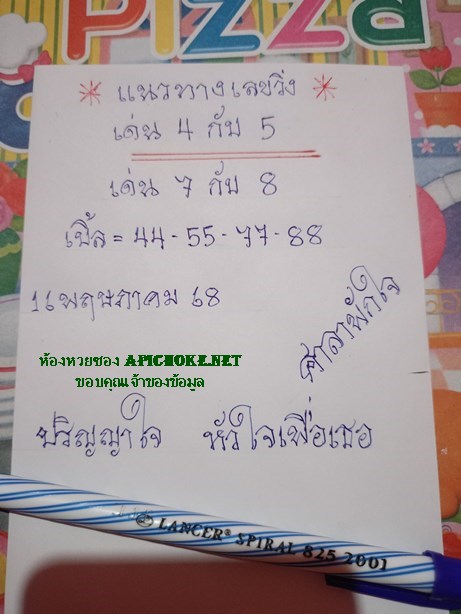 Pizza
* แนวทางเลขวิ่ง *
เด่น 4 กับ 5
เด่น 7 กับ 8
เบิ้ล = 44-55-77-88
16 พฤษภาคม 68
ศาลาพักใจ
ห้องหวยซอง APICHOKE.NET
ขอบคุณเจ้าของข้อมูล
ปริญญาใจ หัวใจเพื่อเธอ
LANCER® SPIRAL 825 2001